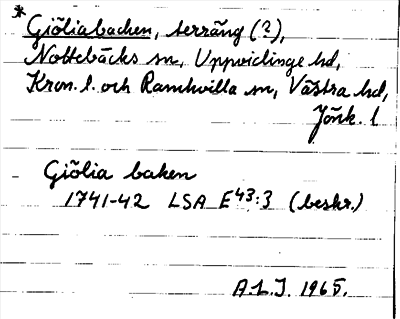 * Giöliabacken, terräng (?),
Nottebäcks sn, Uppvidinge hd,
Kron. l. och Ramkvilla sn, Västra hd,
Jönk. l
Giölia baken
1741-42 LSA E43:3 (beskr.)
A.L.J. 1965.